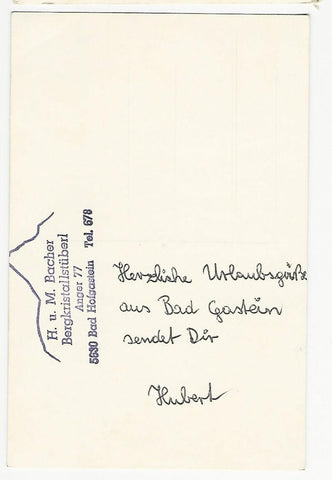 H. u. M. Bacher
Bergkristallstüberl
Anger 77
5630 Bad Hofgastein Tel. 678
Herzliche Urlaubsgrüße
aus Bad Gastein
sendet Dir
Hubert